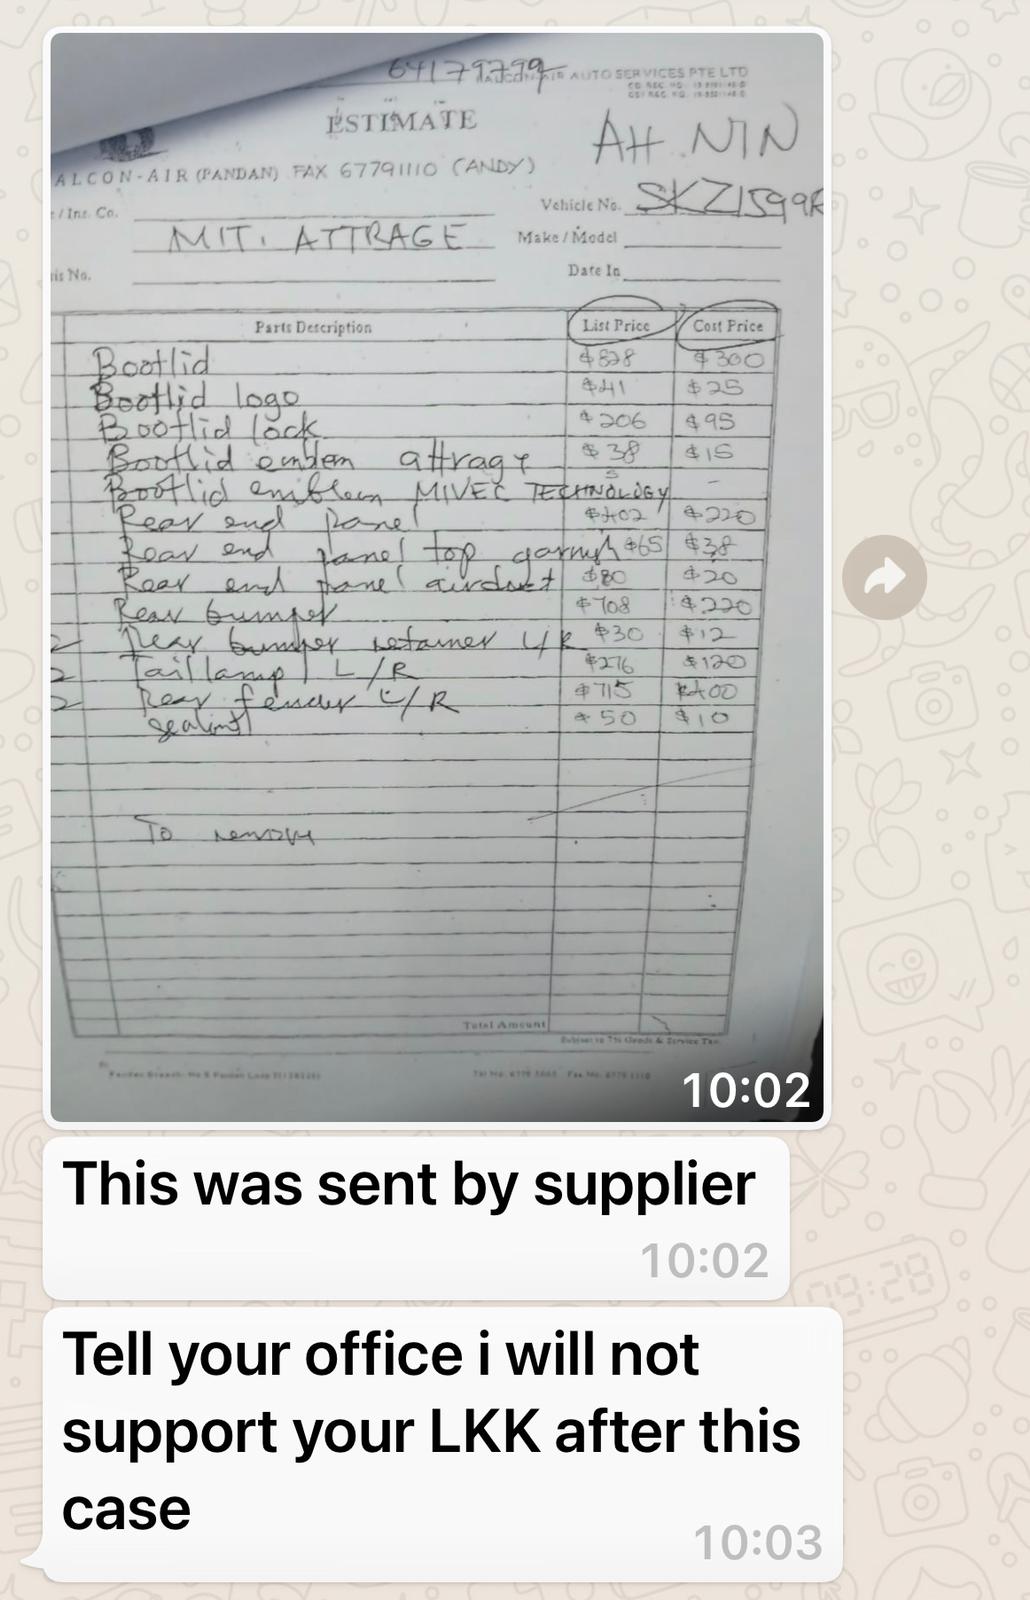 64179799
AUTO SERVICES PTE LTD
ESTIMATE
AH NIN
ALCON-AIR (PANDAN) FAX 67791110 (ANDY)
/ Ins. Co.
Vehicle No. SKZ1599R
MITI ATTRAGE
Make / Model
is No.
Date In
Parts Description List Price Cost Price
Bootlid $828 $300
Bootlid logo $41 $25
Bootlid lock $206 $95
Bootlid emblem attrage $38 $15
Bootlid emblem MIVEC TECHNOLOGY -
Rear end panel $402 $220
Rear end panel top garnish $65 $38
Rear end panel airduct $80 $20
Rear bumper $708 $220
2 Rear bumper retainer L/R $30 $12
2 Taillamp L/R $276 $120
2 Rear fender L/R $715 $400
sealant $50 $10
To remove
Total Amount
Subject to 7% Goods & Service Tax
10:02
This was sent by supplier
10:02
Tell your office i will not
support your LKK after this
case
10:03